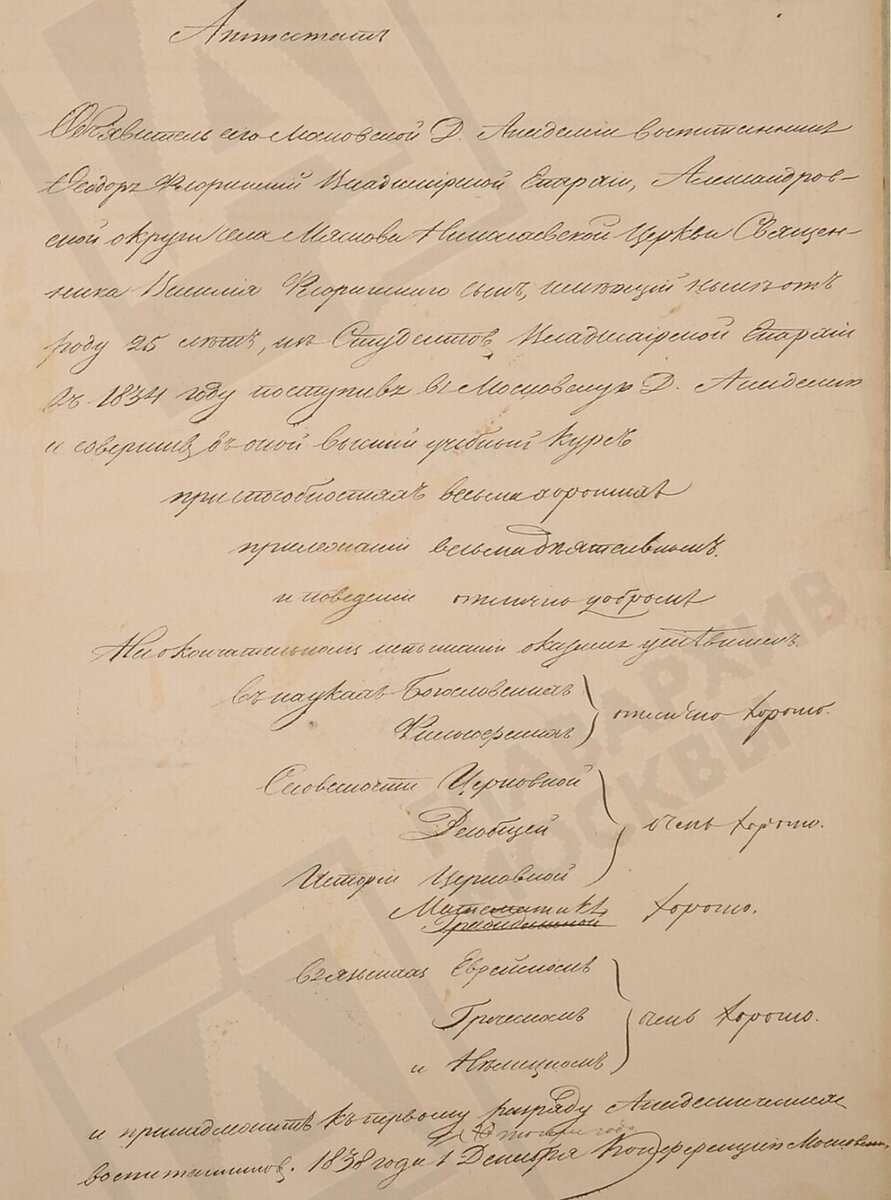 Аттестатъ
Объявитель сего Московской Д. Академіи воспитанникъ
Ѳеодоръ Флоринскій Владимірской Епархіи, Александров-
ской округи села Мячкова Николаевской Церкви Священ-
ника Василія Флоринскаго сынъ, имѣющій нынѣ отъ
роду 25 лѣтъ, изъ Студентовъ Владимірской Епархіи
въ 1834 году поступивъ въ Московскую Д. Академію
и совершивъ въ оной высшій учебный курсъ
при способностяхъ весьма хорошихъ
прилежаніи весьма дѣятельномъ.
и поведеніи отлично добромъ
На окончательномъ испытаніи оказался успѣвшимъ.
Въ наукахъ Богословскихъ
Философскихъ
отлично хорошо.
Словесности Церковной
и общей
Исторіи Церковной
очень хорошо.
Математикѣ хорошо.
въ языкахъ Еврейскомъ
Греческомъ
и Нѣмецкомъ
очень хорошо.
и принадлежитъ къ первому разряду Академическихъ
воспитанниковъ. 1838 года 1 Декабря Конференціи Московской
ГЛАВАРХИВ
МОСКВЫ